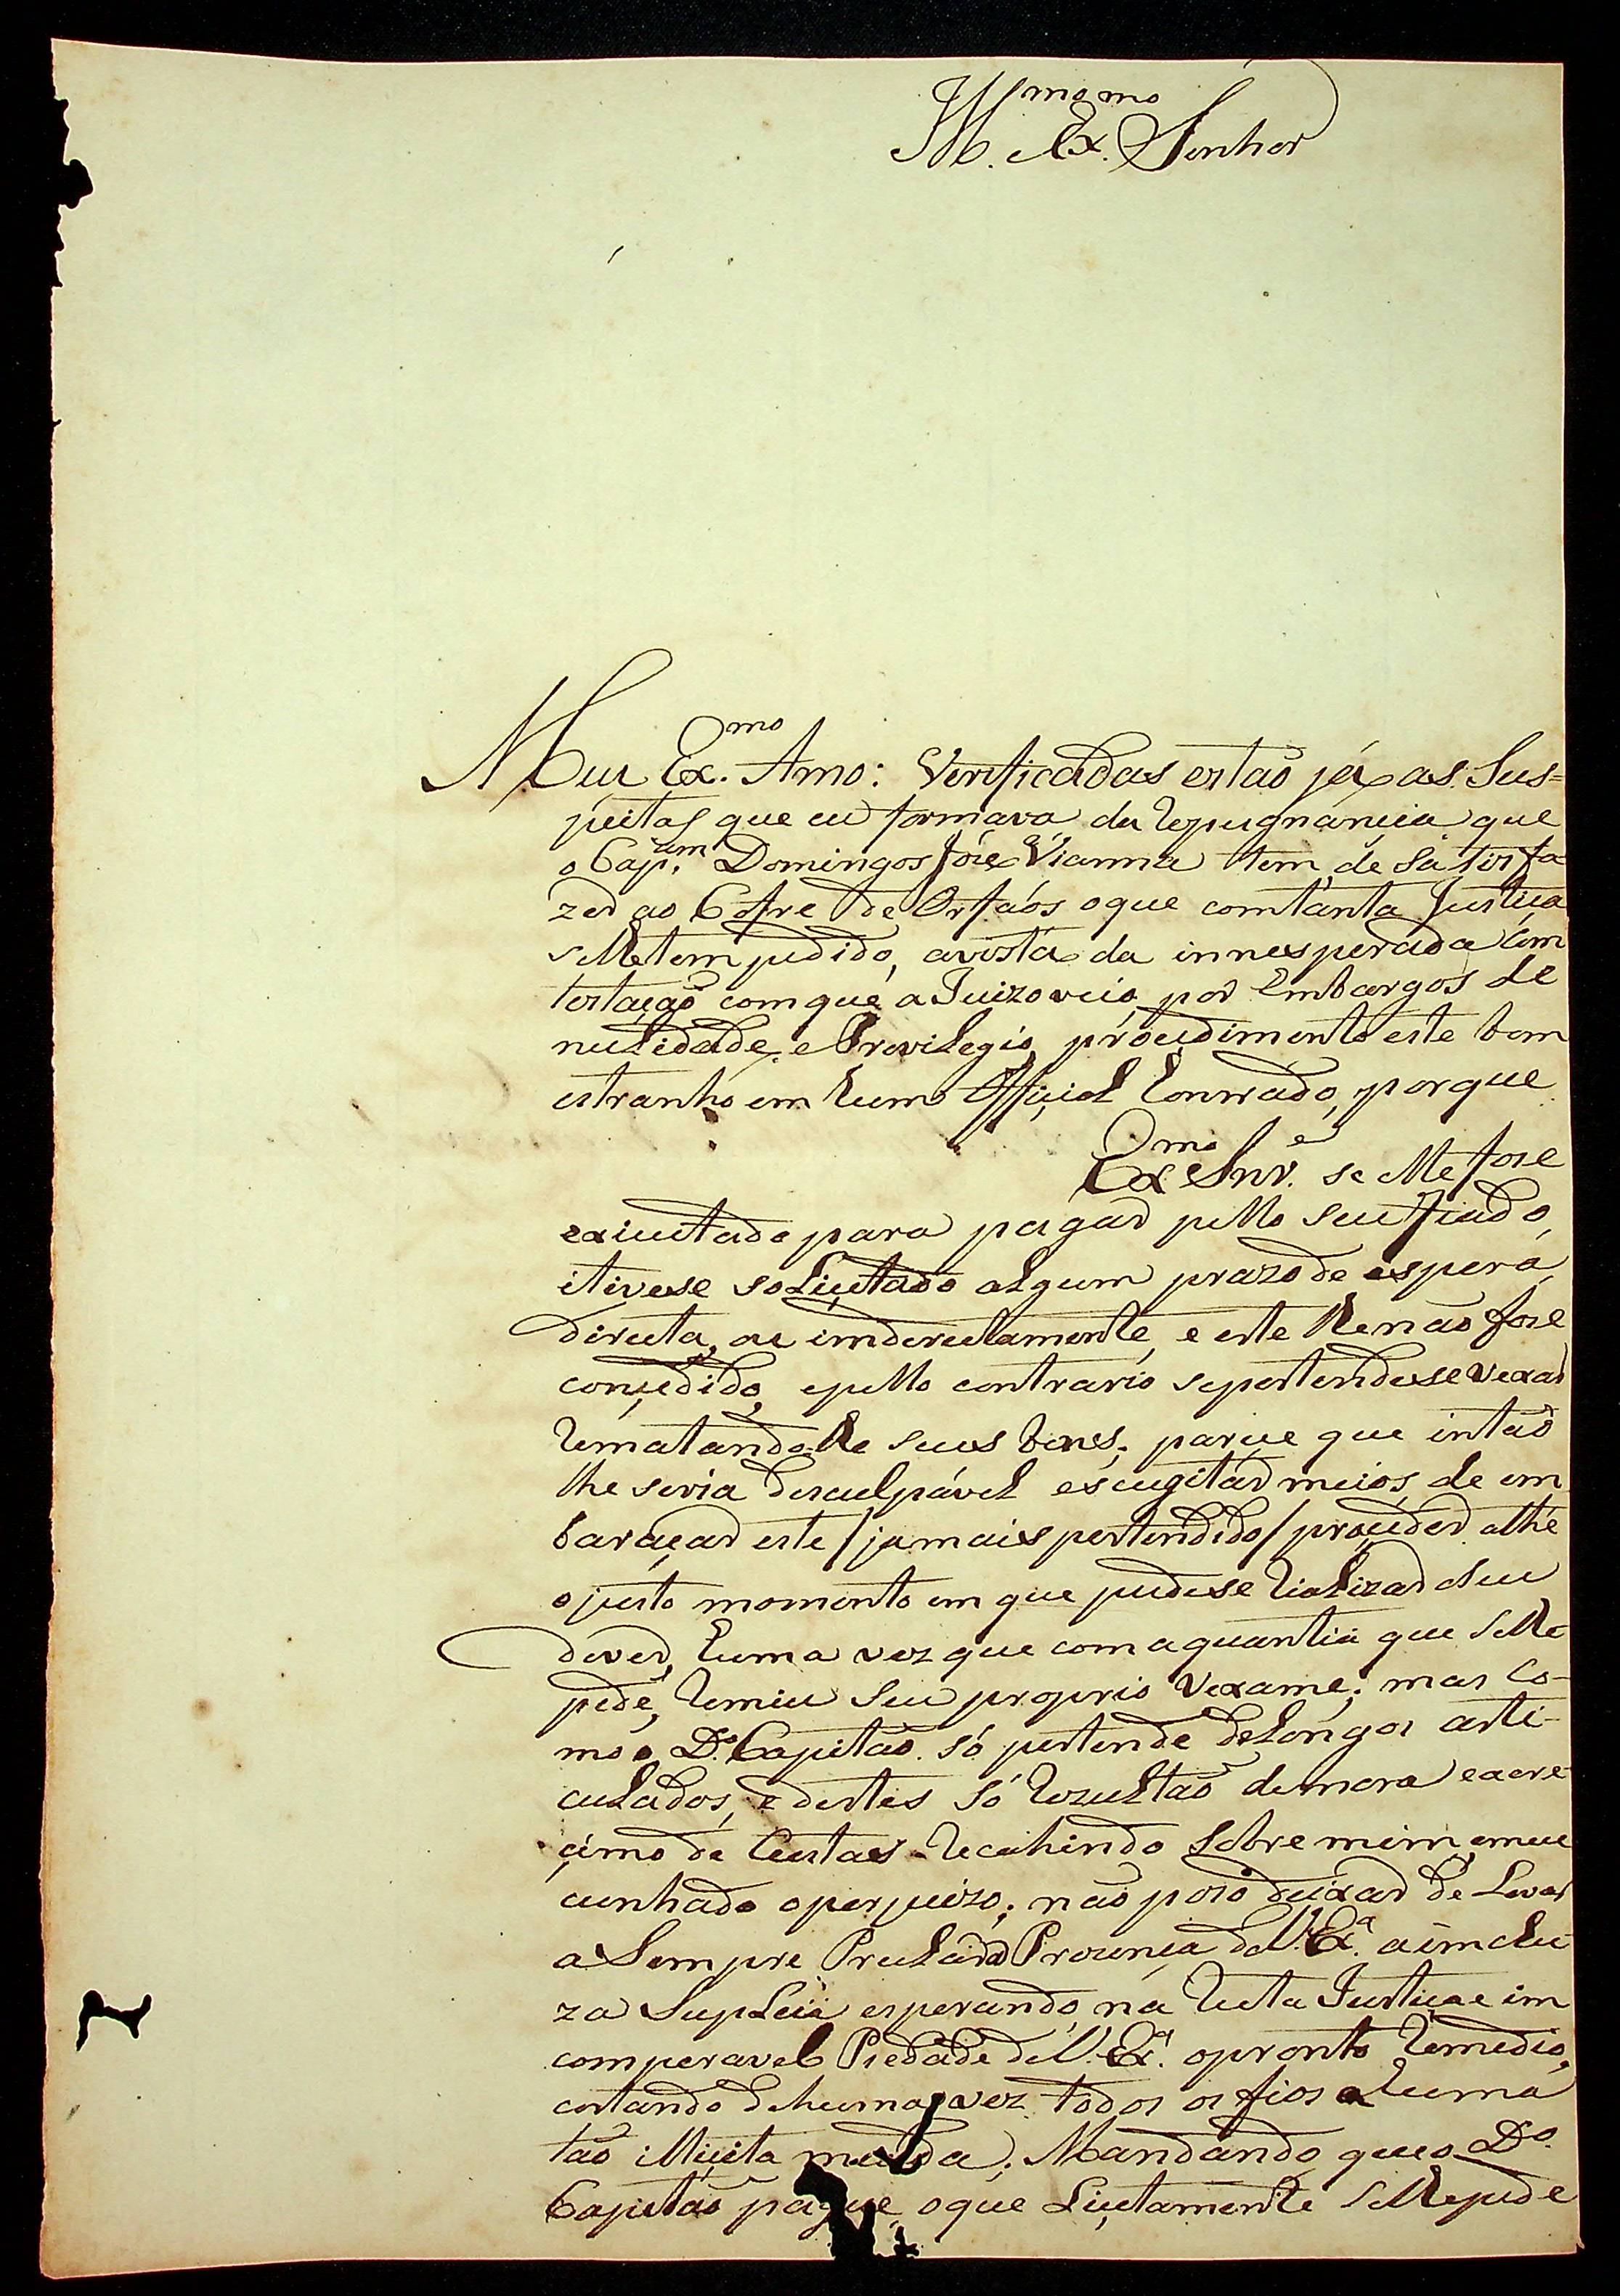 Ill.mo Ex.mo Senhor
Meu Ex.mo Amo: Verificadas estaõ já as Sus=
peitas que eu formava da repugnancia que
o Cap.am Domingos Józe Vianna tem de Satisfa
zer ao Cofre de Orfaós o que comtanta Justiça
selhe tem pedido, avista da innesperada Com
testaçaõ comque a Juizo veio por Embargos de
nulidade, e Previlegio, procedimento este bem
estranho em hum Official honrrado, porque
Ex.mo Snr.e se lhe fose
exicutado para pagar pello seu fiado,
itivese soLicitado algum prazo de espera,
directa, ou imderectamente, e este lhe não fose
conçedido, epello contrario sepertendese vexar
rematandolhe seus bens; pareçe que intaõ
lhe seria desculpável escugitar meios de em
baraçar este /jamais pertendido/ proçeder athé
o justo momento em que podese rializar o seu
dever, huma vez que com aquantia que selhe
pede, remiu seu proprio vexame; mas Co-
mo o D.o Capitaõ só pertende deLongas arti-
culados, e destes só rezultaõ demora eacre-
çimo de Custas recahindo Sobre mim, emeu
cunhado operjuizo; naõ poso deixar de Levar
a Sempre Preclara Prezença de V. Ex.a a imclu-
za Suplica esperando na recta Justiça e im
comperavel Piedade de V. Ex.a opronto remedio,
cortando dehuma vez todos os fios a huma
taõ illicita meada; Mandando que o D.o
Capitaõ pague o que Licitamente selhe pede